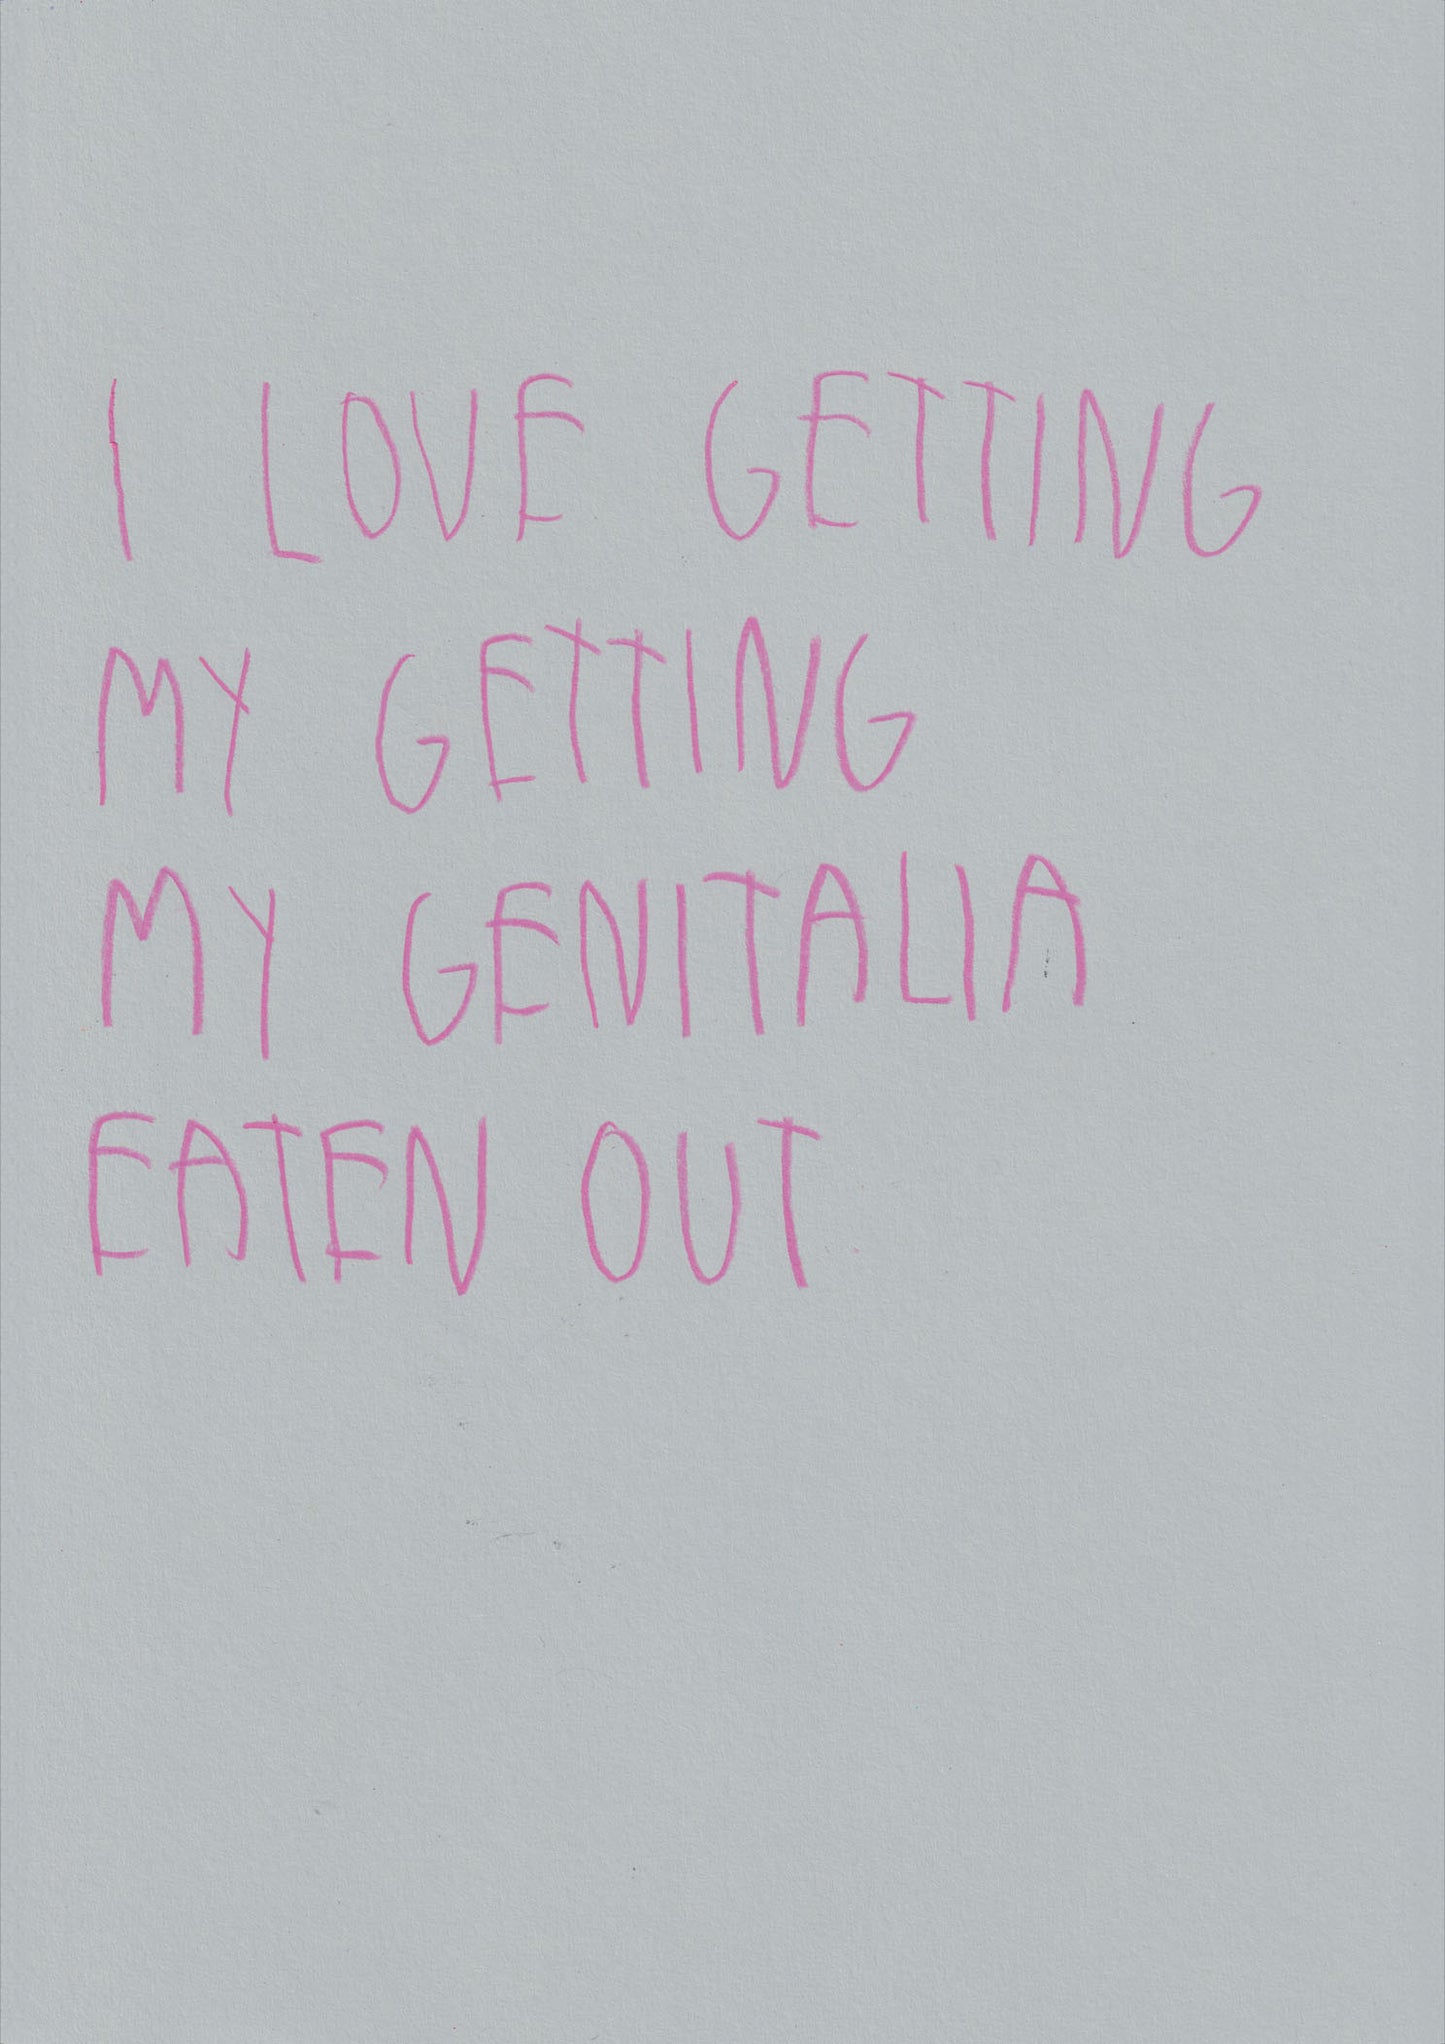 I LOVE GETTING
MY GETTING
MY GENITALIA
EATEN OUT